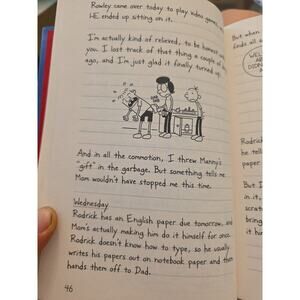 Rowley came over today to play video games
HE ended up sitting on it.
I'm actually kind of relieved, to be honest
you. I lost track of that thing a couple of
ago, and I'm just glad it finally turned up.
And in all the commotion, I threw Manny's
"gift" in the garbage. But something tells me
Mom wouldn't have stopped me this time.
Wednesday
Rodrick has an English paper due tomorrow, and
Mom's actually making him do it himself for once.
Rodrick doesn't know how to type, so he usually
writes his papers out on notebook paper and then
hands them off to Dad.
46
But when
finds all
WELL
DIDN
Rodrick
he tells
paper
But I
in, it
scrat
bring
him